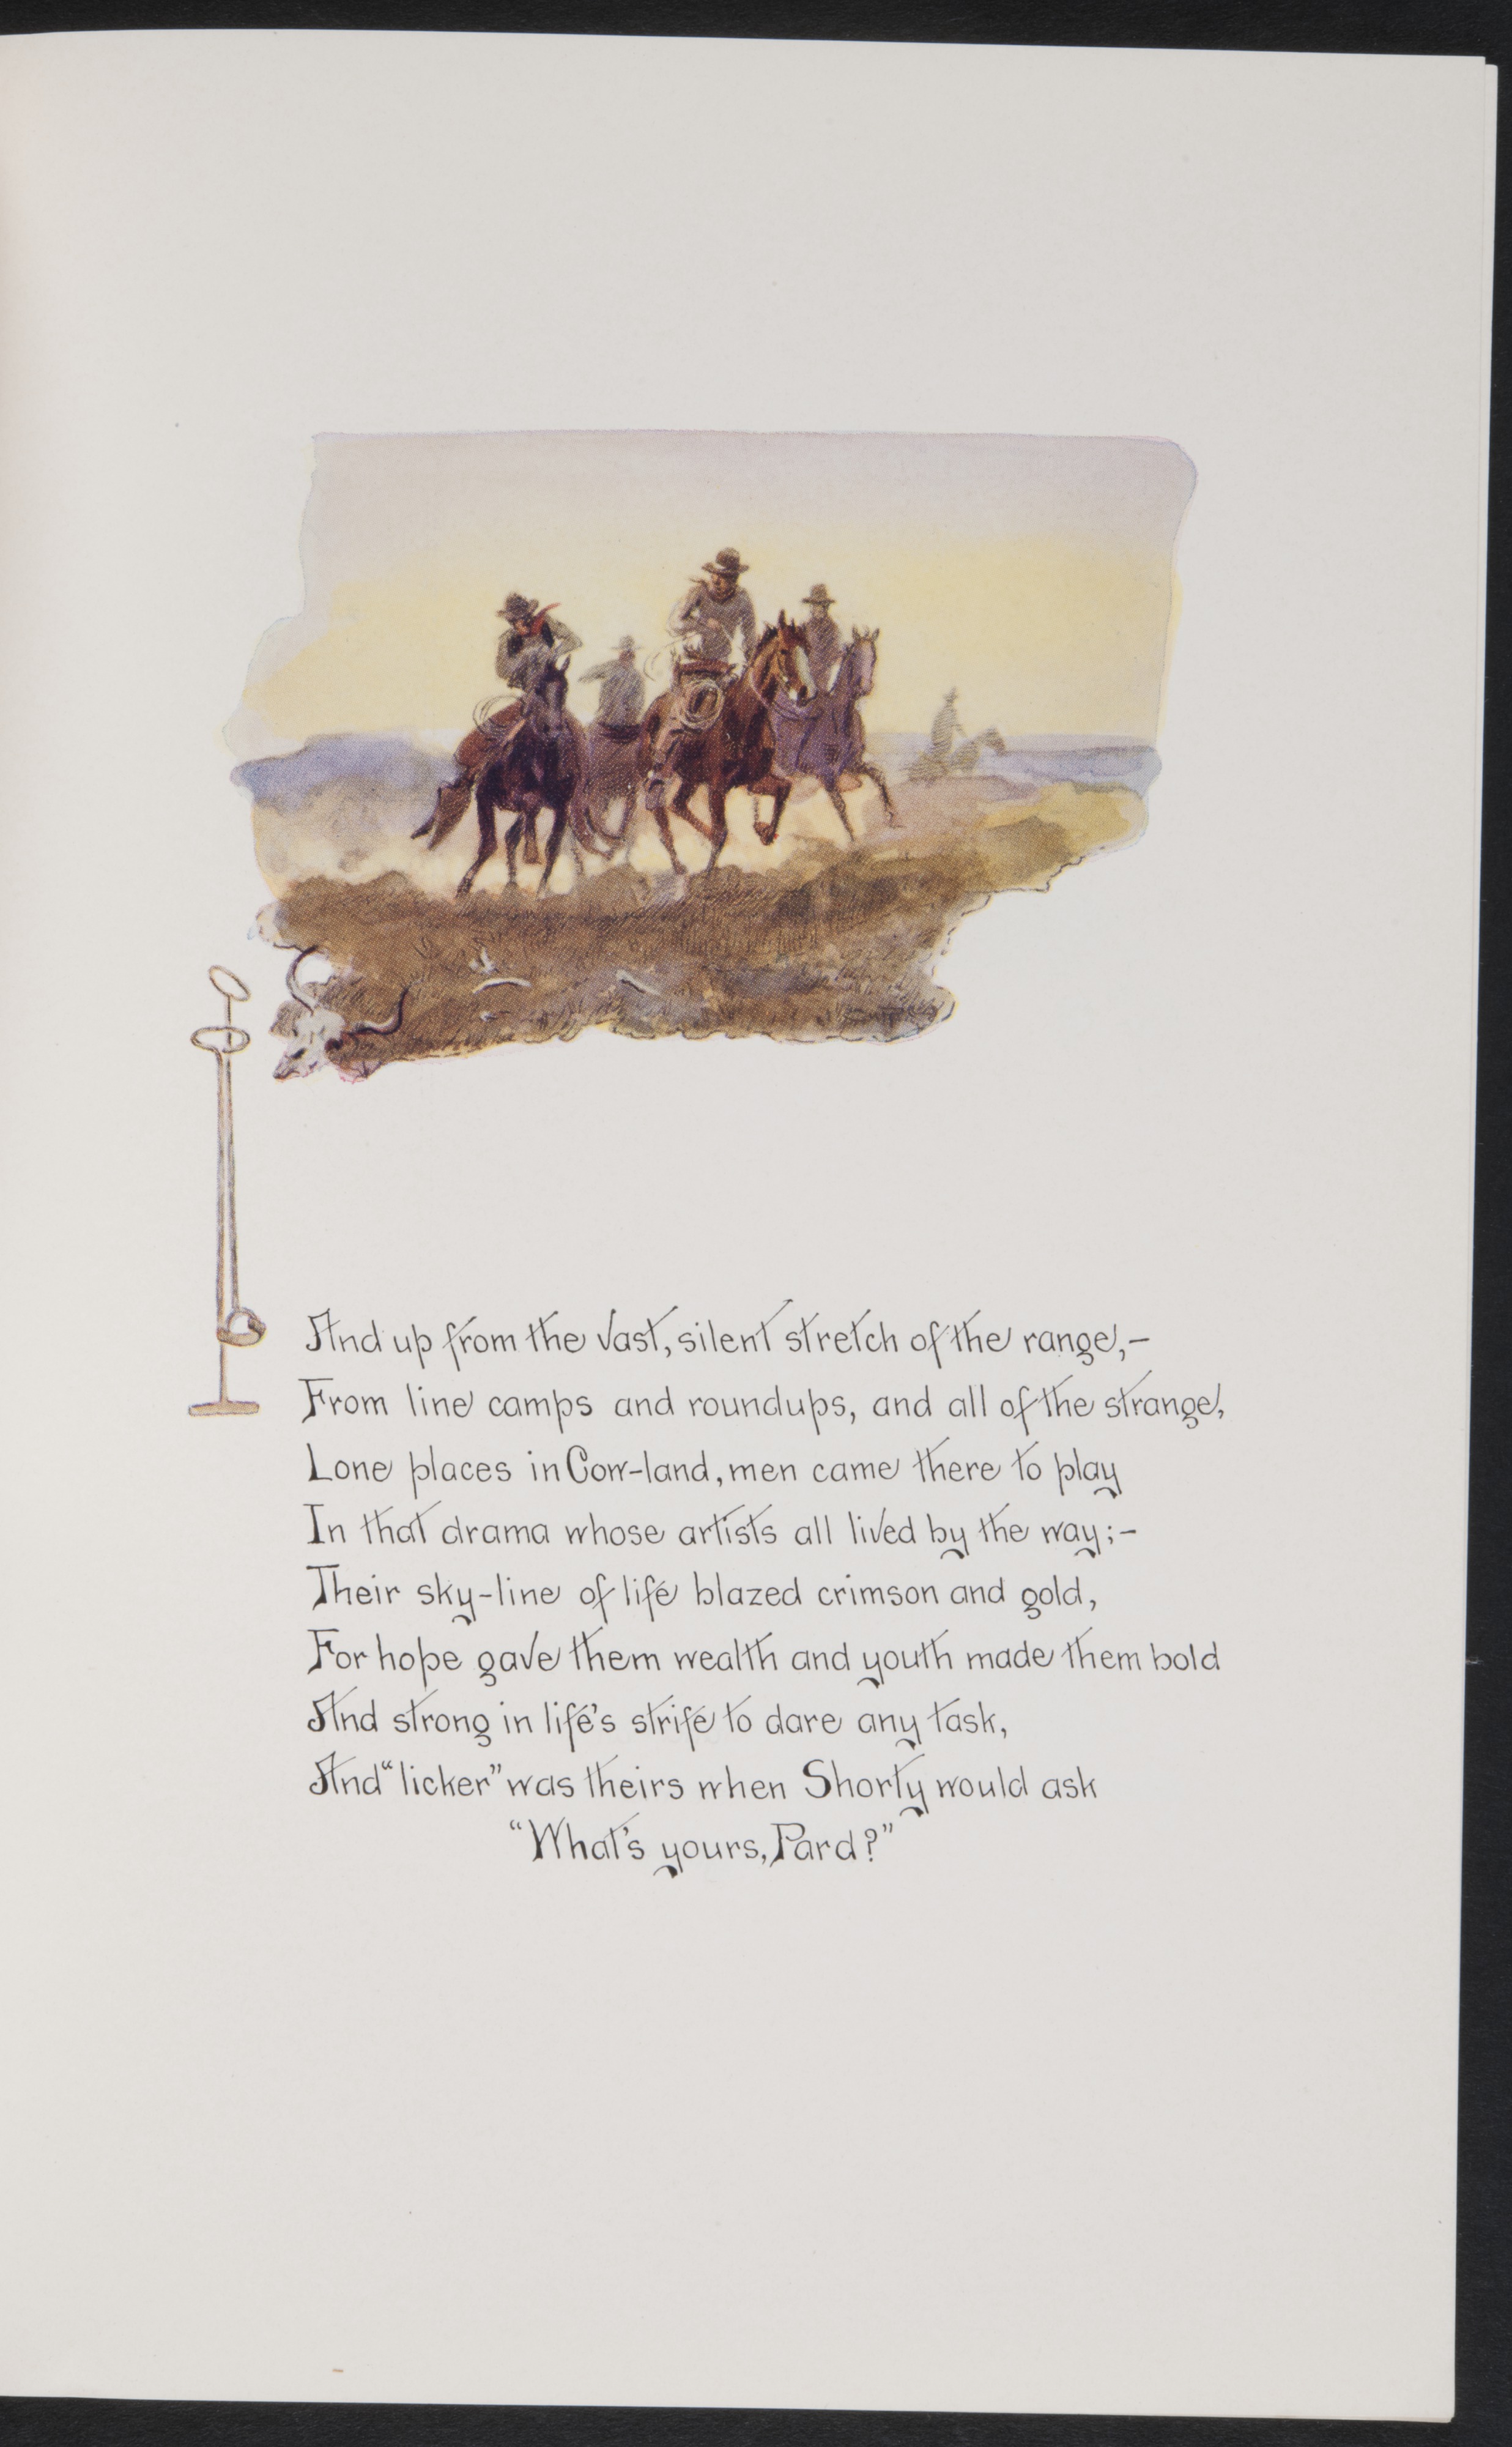 And up from the vast, silent stretch of the range,-
From line camps and roundups, and all of the strange,
Lone places in Cow-land, men came there to play
In that drama whose artists all lived by the way;-
Their sky-line of life blazed crimson and gold,
For hope gave them wealth and youth made them bold
And strong in life's strife to dare any task,
And "licker" was theirs when Shorty would ask
"What's yours, Pard?"